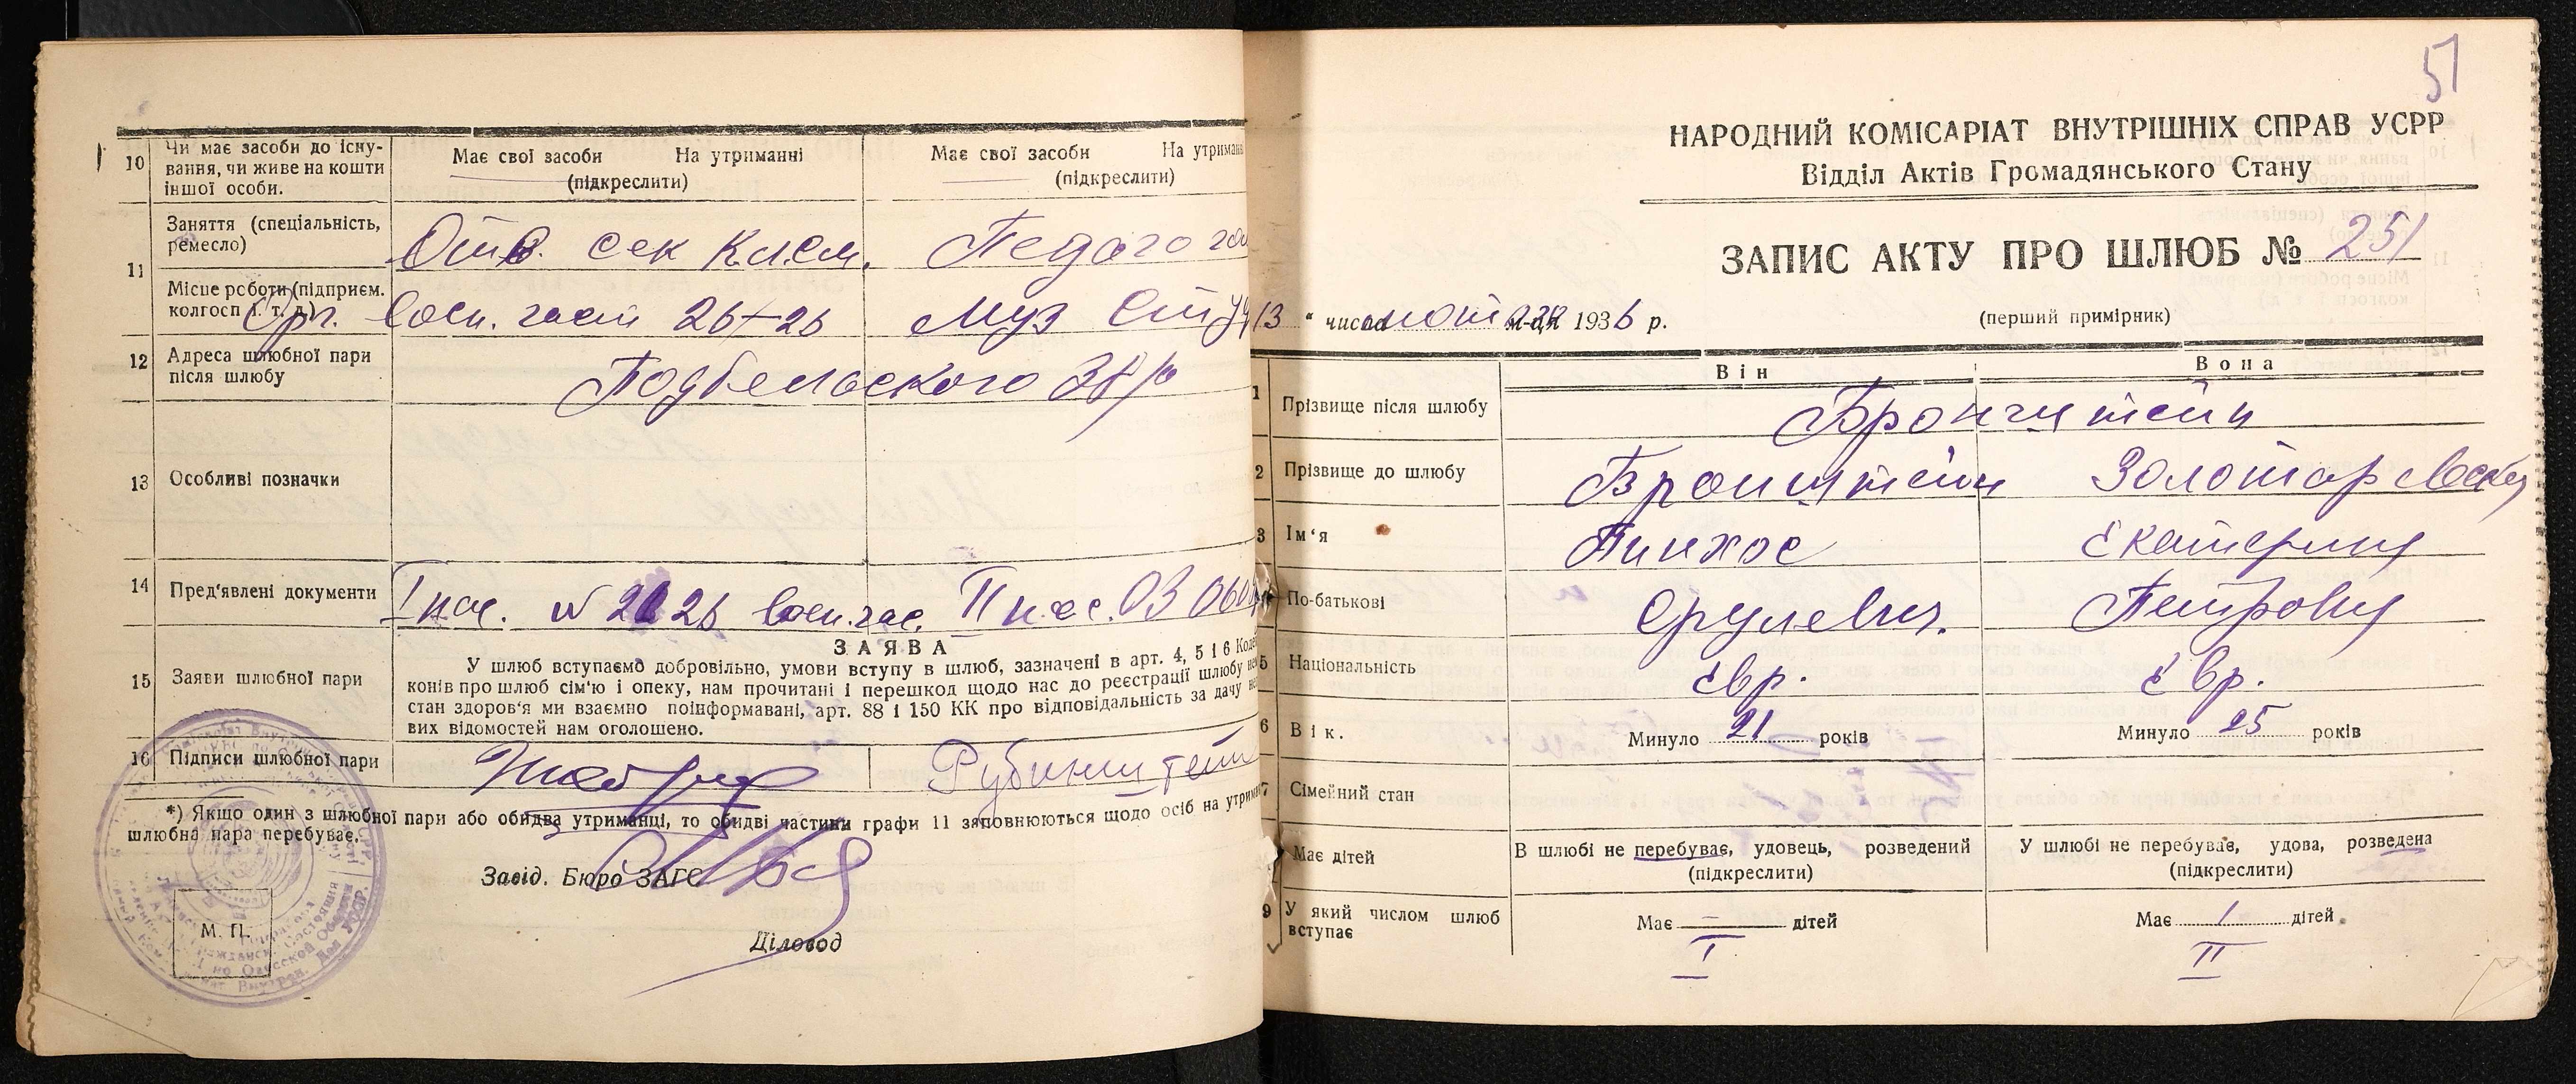 10
Чи має засоби до існу-
вання, чи живе на кошти
іншої особи.
Має свої засоби На утриманні
(підкреслити)
Має свої засоби На утриман
(підкреслити)
11
Заняття (спеціальність,
ремесло)
Отв. сек
Педагог
Місце роботи (підприєм.
колгосп і. т. д.)
Воен. част 26+26
Муз
12
Адреса шлюбної пари
після шлюбу
Подбельского
13
Особливі позначки
14
Пред'явлені документи
I пас. № воен. час. II пас. 03
15
Заяви шлюбної пари
ЗАЯВА
У шлюб вступаємо добровільно, умови вступу в шлюб, зазначені в арт. 4, 5 і 6 Коде
конів про шлюб сім'ю і опеку, нам прочитані і перешкод щодо нас до реєстрації шлюбу не
стан здоров'я ми взаємно поінформавані, арт. 88 і 150 КК про відповідальність за дачу не
вих відомостей нам оголошено.
16
Підписи шлюбної пари
Рубинштейн
*) Якщо один з шлюбної пари або обидва утриманці, то обидві частини графи 11 заповнюються щодо осіб на утрим
шлюбна пара перебуває.
Завід. Бюро ЗАГС
М. П.
Діловод
51
НАРОДНИЙ КОМІСАРІАТ ВНУТРІШНІХ СПРАВ УСРР
Відділ Актів Громадянського Стану
ЗАПИС АКТУ ПРО ШЛЮБ № 251
13 " числа м-ця 1936 р.
(перший примірник)
Він
Вона
1
Прізвище після шлюбу
Бронштейн
2
Прізвище до шлюбу
Бронштейн
Золотаревская
3
Ім'я
Пинхос
Екатерина
По-батькові
Срулевич.
Петровна
5
Національність
Евр.
Евр.
6
Вік.
Минуло 21 років
Минуло 25 років
7
Сімейний стан
Має дітей
В шлюбі не перебуває, удовець, розведений
(підкреслити)
У шлюбі не перебуває, удова, розведена
(підкреслити)
9
У який числом шлюб
вступає
Має — дітей
Має 1 дітей
I
II